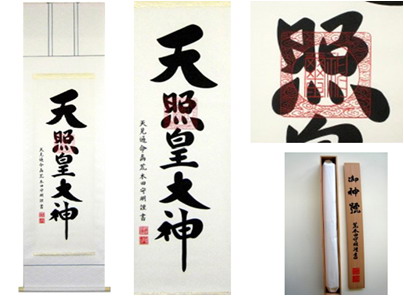 天照皇大神
天見通命孫荒木田守明謹書
天照皇大神
天見通命孫荒木田守明謹書
照
御神號
荒木田守明謹書